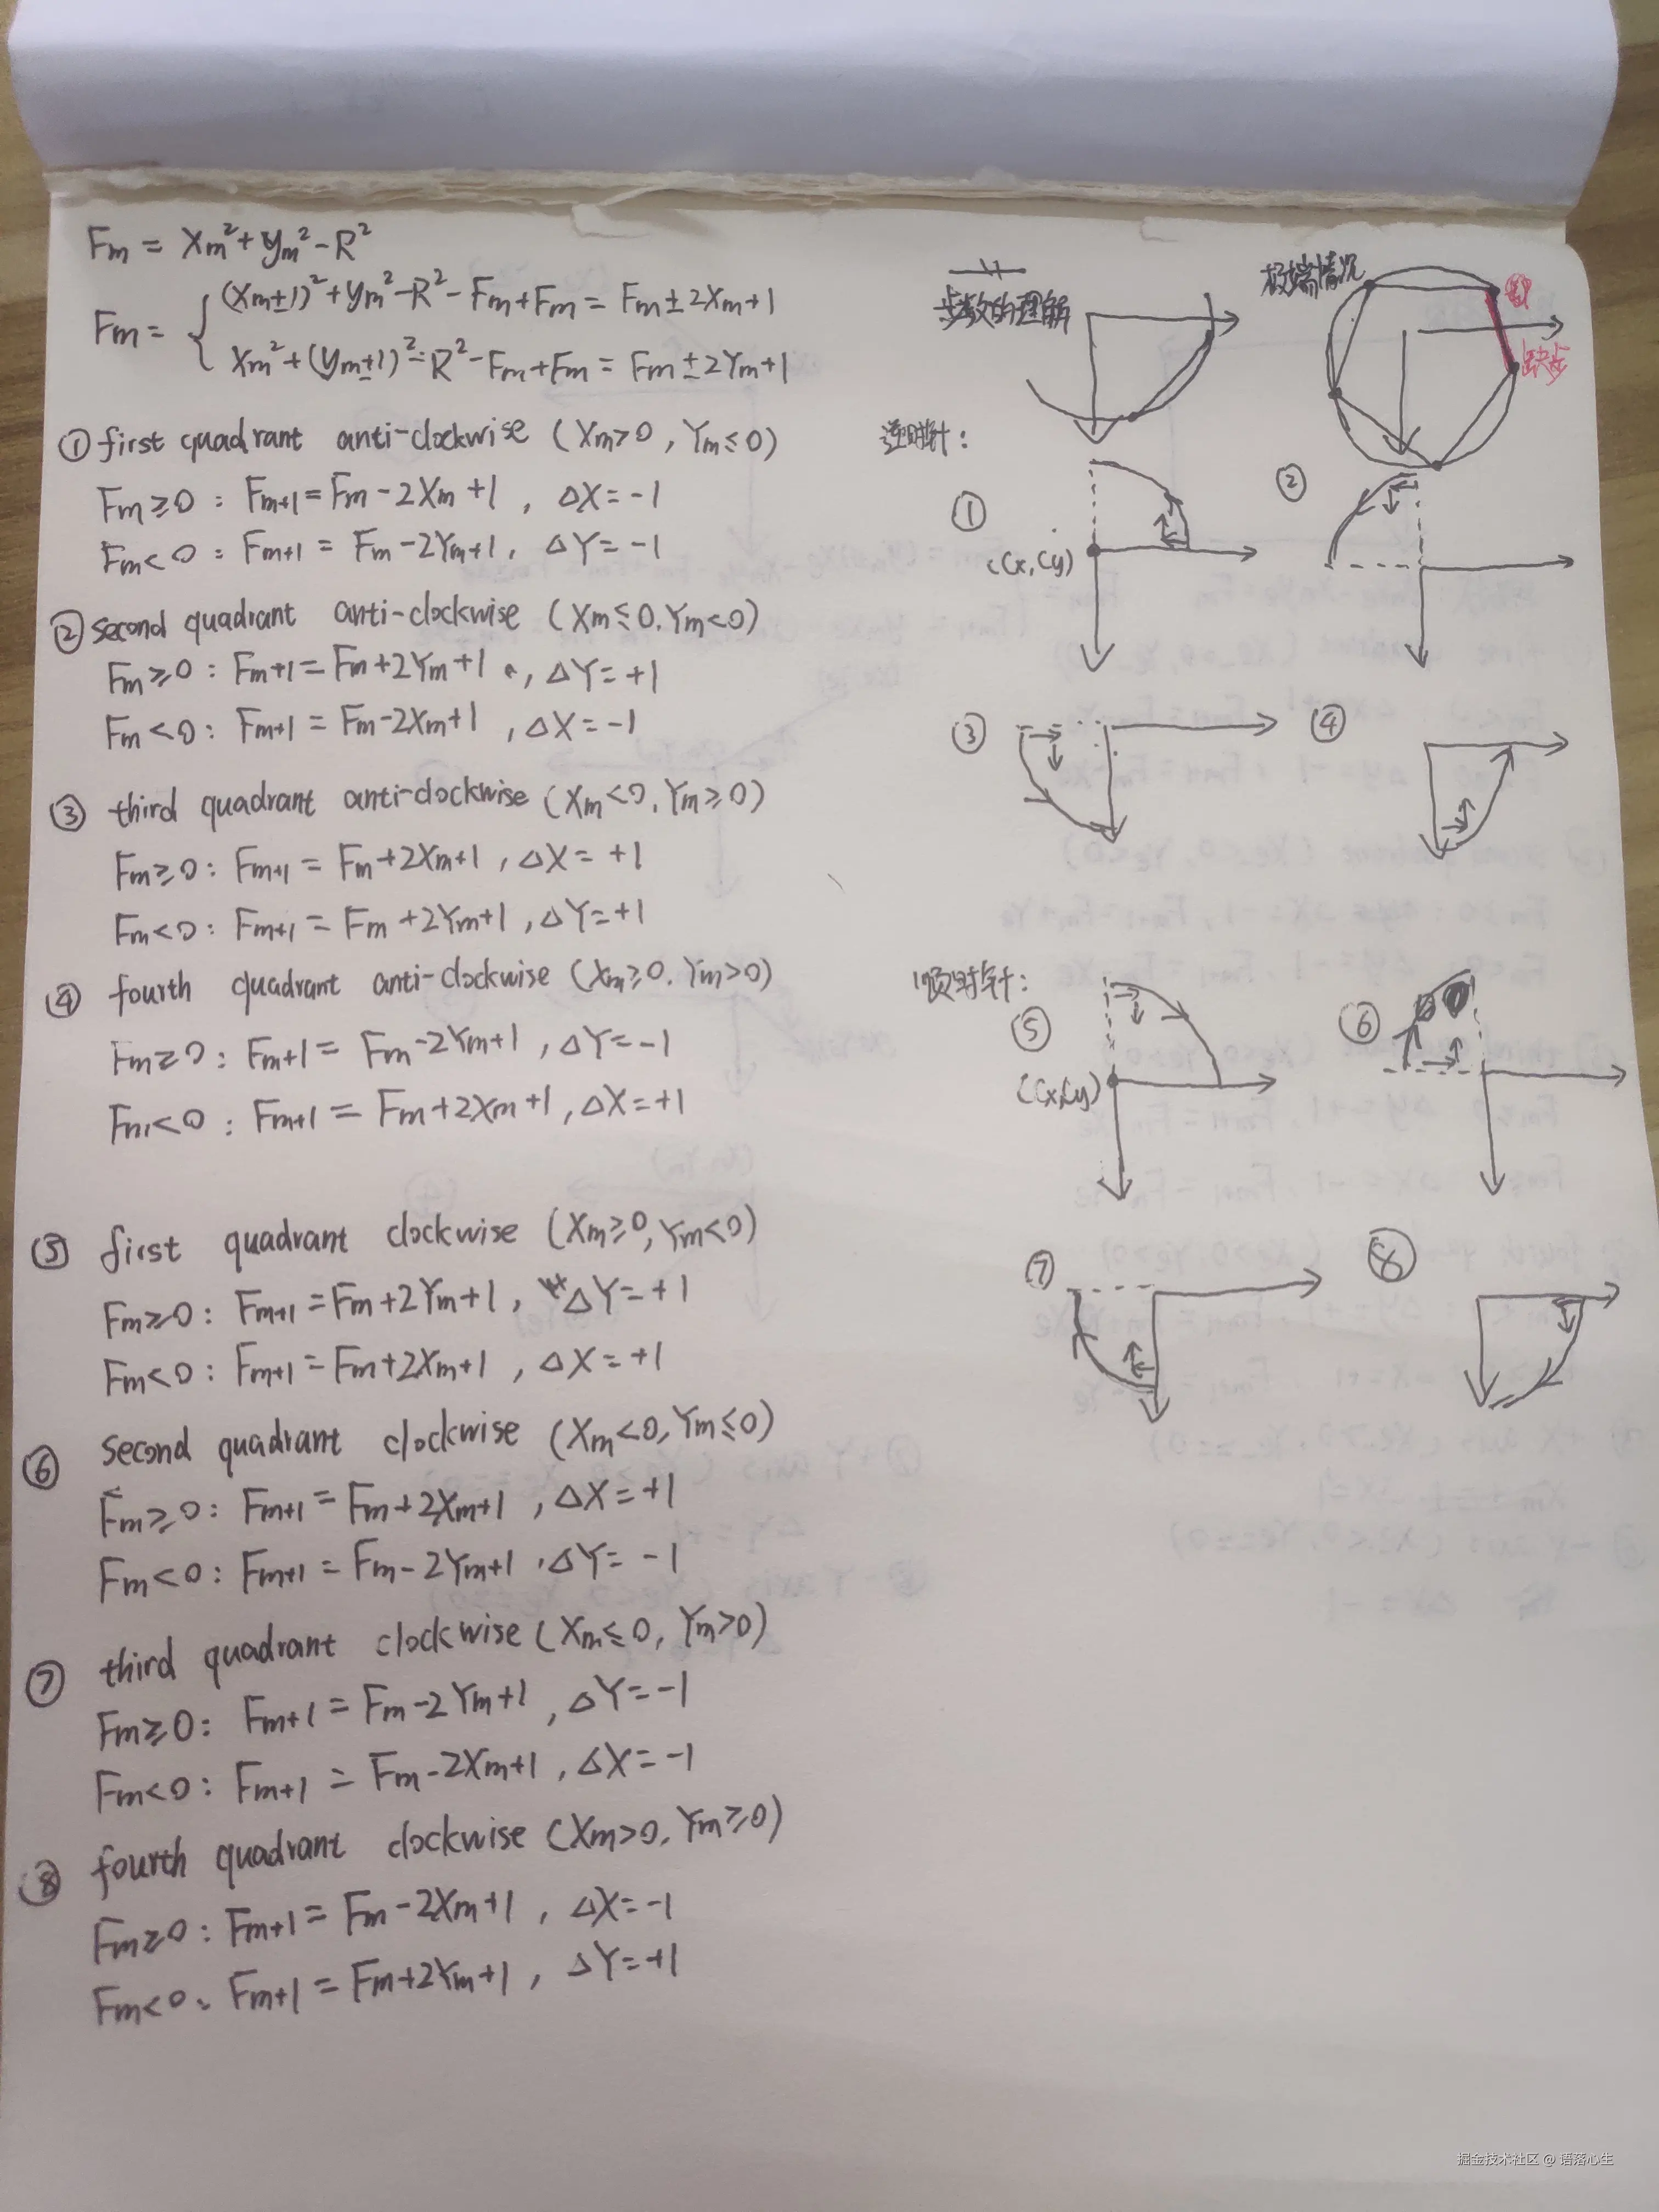 Fm = Xm² + ym² - R²
Fm = { (Xm±1)² + ym² - R² - Fm + Fm = Fm ± 2Xm + 1
Xm² + (ym±1)² - R² - Fm + Fm = Fm ± 2Ym + 1
① first quadrant anti-clockwise (Xm>0, Ym≤0)
Fm≥0: Fm+1 = Fm - 2Xm + 1, ΔX = -1
Fm<0: Fm+1 = Fm - 2Ym + 1, ΔY = -1
② second quadrant anti-clockwise (Xm≤0, Ym<0)
Fm≥0: Fm+1 = Fm + 2Ym + 1, ΔY = +1
Fm<0: Fm+1 = Fm - 2Xm + 1, ΔX = -1
③ third quadrant anti-clockwise (Xm<0, Ym≥0)
Fm≥0: Fm+1 = Fm + 2Xm + 1, ΔX = +1
Fm<0: Fm+1 = Fm + 2Ym + 1, ΔY = +1
④ fourth quadrant anti-clockwise (Xm≥0, Ym>0)
Fm≥0: Fm+1 = Fm - 2Ym + 1, ΔY = -1
Fm<0: Fm+1 = Fm + 2Xm + 1, ΔX = +1
⑤ first quadrant clockwise (Xm≥0, Ym<0)
Fm≥0: Fm+1 = Fm + 2Ym + 1, ΔY = +1
Fm<0: Fm+1 = Fm + 2Xm + 1, ΔX = +1
⑥ second quadrant clockwise (Xm<0, Ym≤0)
Fm≥0: Fm+1 = Fm + 2Xm + 1, ΔX = +1
Fm<0: Fm+1 = Fm - 2Ym + 1, ΔY = -1
⑦ third quadrant clockwise (Xm≤0, Ym>0)
Fm≥0: Fm+1 = Fm - 2Ym + 1, ΔY = -1
Fm<0: Fm+1 = Fm - 2Xm + 1, ΔX = -1
⑧ fourth quadrant clockwise (Xm>0, Ym≥0)
Fm≥0: Fm+1 = Fm - 2Xm + 1, ΔX = -1
Fm<0: Fm+1 = Fm + 2Ym + 1, ΔY = +1
步数的理解
极端情况
缺步
逆时针:
①
②
(Cx, Cy)
③
④
顺时针:
⑤
⑥
(Cx, Cy)
⑦
⑧
掘金技术社区 @ 语落心生